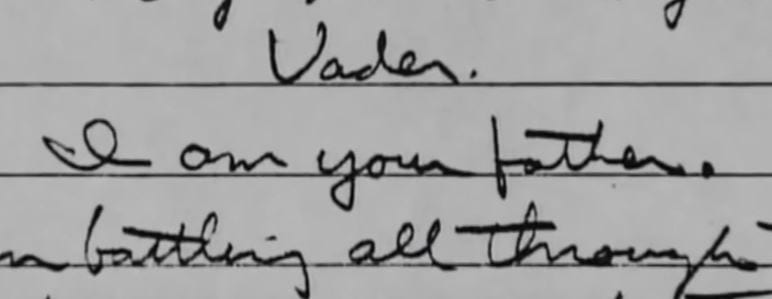 Vader.
I am your father.
battling all through